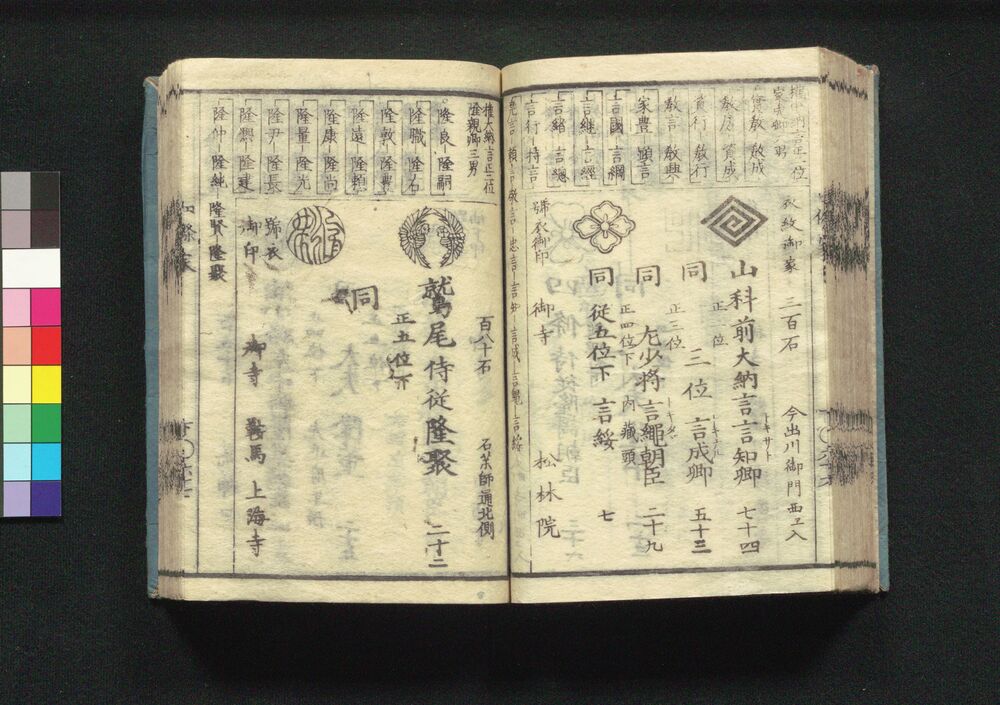 衣紋御家 三百石 今出川御門西エ入
山科前大納言言知卿 七十四
トキサト
正 位
同 三位 言成卿 五十三
正三位
同 左少将言縄朝臣 二十九
正四位下 内蔵頭
同 従五位下 言綏 七
號衣御印 御寺 松林院
権大納言正二位
家 卿 男
教成
教房 資成
資行 教行
教言 教興
家豊 顕言
言國 言綱
言継 言經
言緒 言總
言行 持言
頼言 敬言 忠言 言知 言成 言縄 言綏
百八十石 石薬師通北側
鷲尾侍従隆聚 二十二
正五位下
同
號衣
御印 御寺 鞍馬 上海寺
権大納言正二位
隆親卿三男
隆良 隆嗣
隆職 隆右
隆敦 隆興
隆遠 隆頼
隆康 隆尚
隆量 隆光
隆尹 隆長
隆熈 隆建
隆仲 隆純 隆賢 隆聚